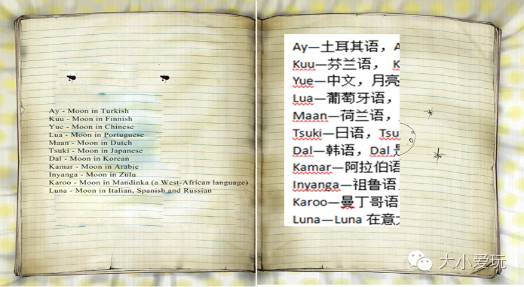 Ay - Moon in Turkish
Kuu - Moon in Finnish
Yue - Moon in Chinese
Lua - Moon in Portuguese
Maan - Moon in Dutch
Tsuki - Moon in Japanese
Dal - Moon in Korean
Kamar - Moon in Arabic
Inyanga - Moon in Zulu
Karoo - Moon in Mandinka (a West-African language)
Luna - Moon in Italian, Spanish and Russian
Ay—土耳其语，A
Kuu—芬兰语， K
Yue—中文，月亮
Lua—葡萄牙语，
Maan—荷兰语，
Tsuki—日语，Tsu
Dal—韩语，Dal 是
Kamar—阿拉伯语
Inyanga—祖鲁语
Karoo—曼丁哥语
Luna—Luna 在意大
大小爱玩